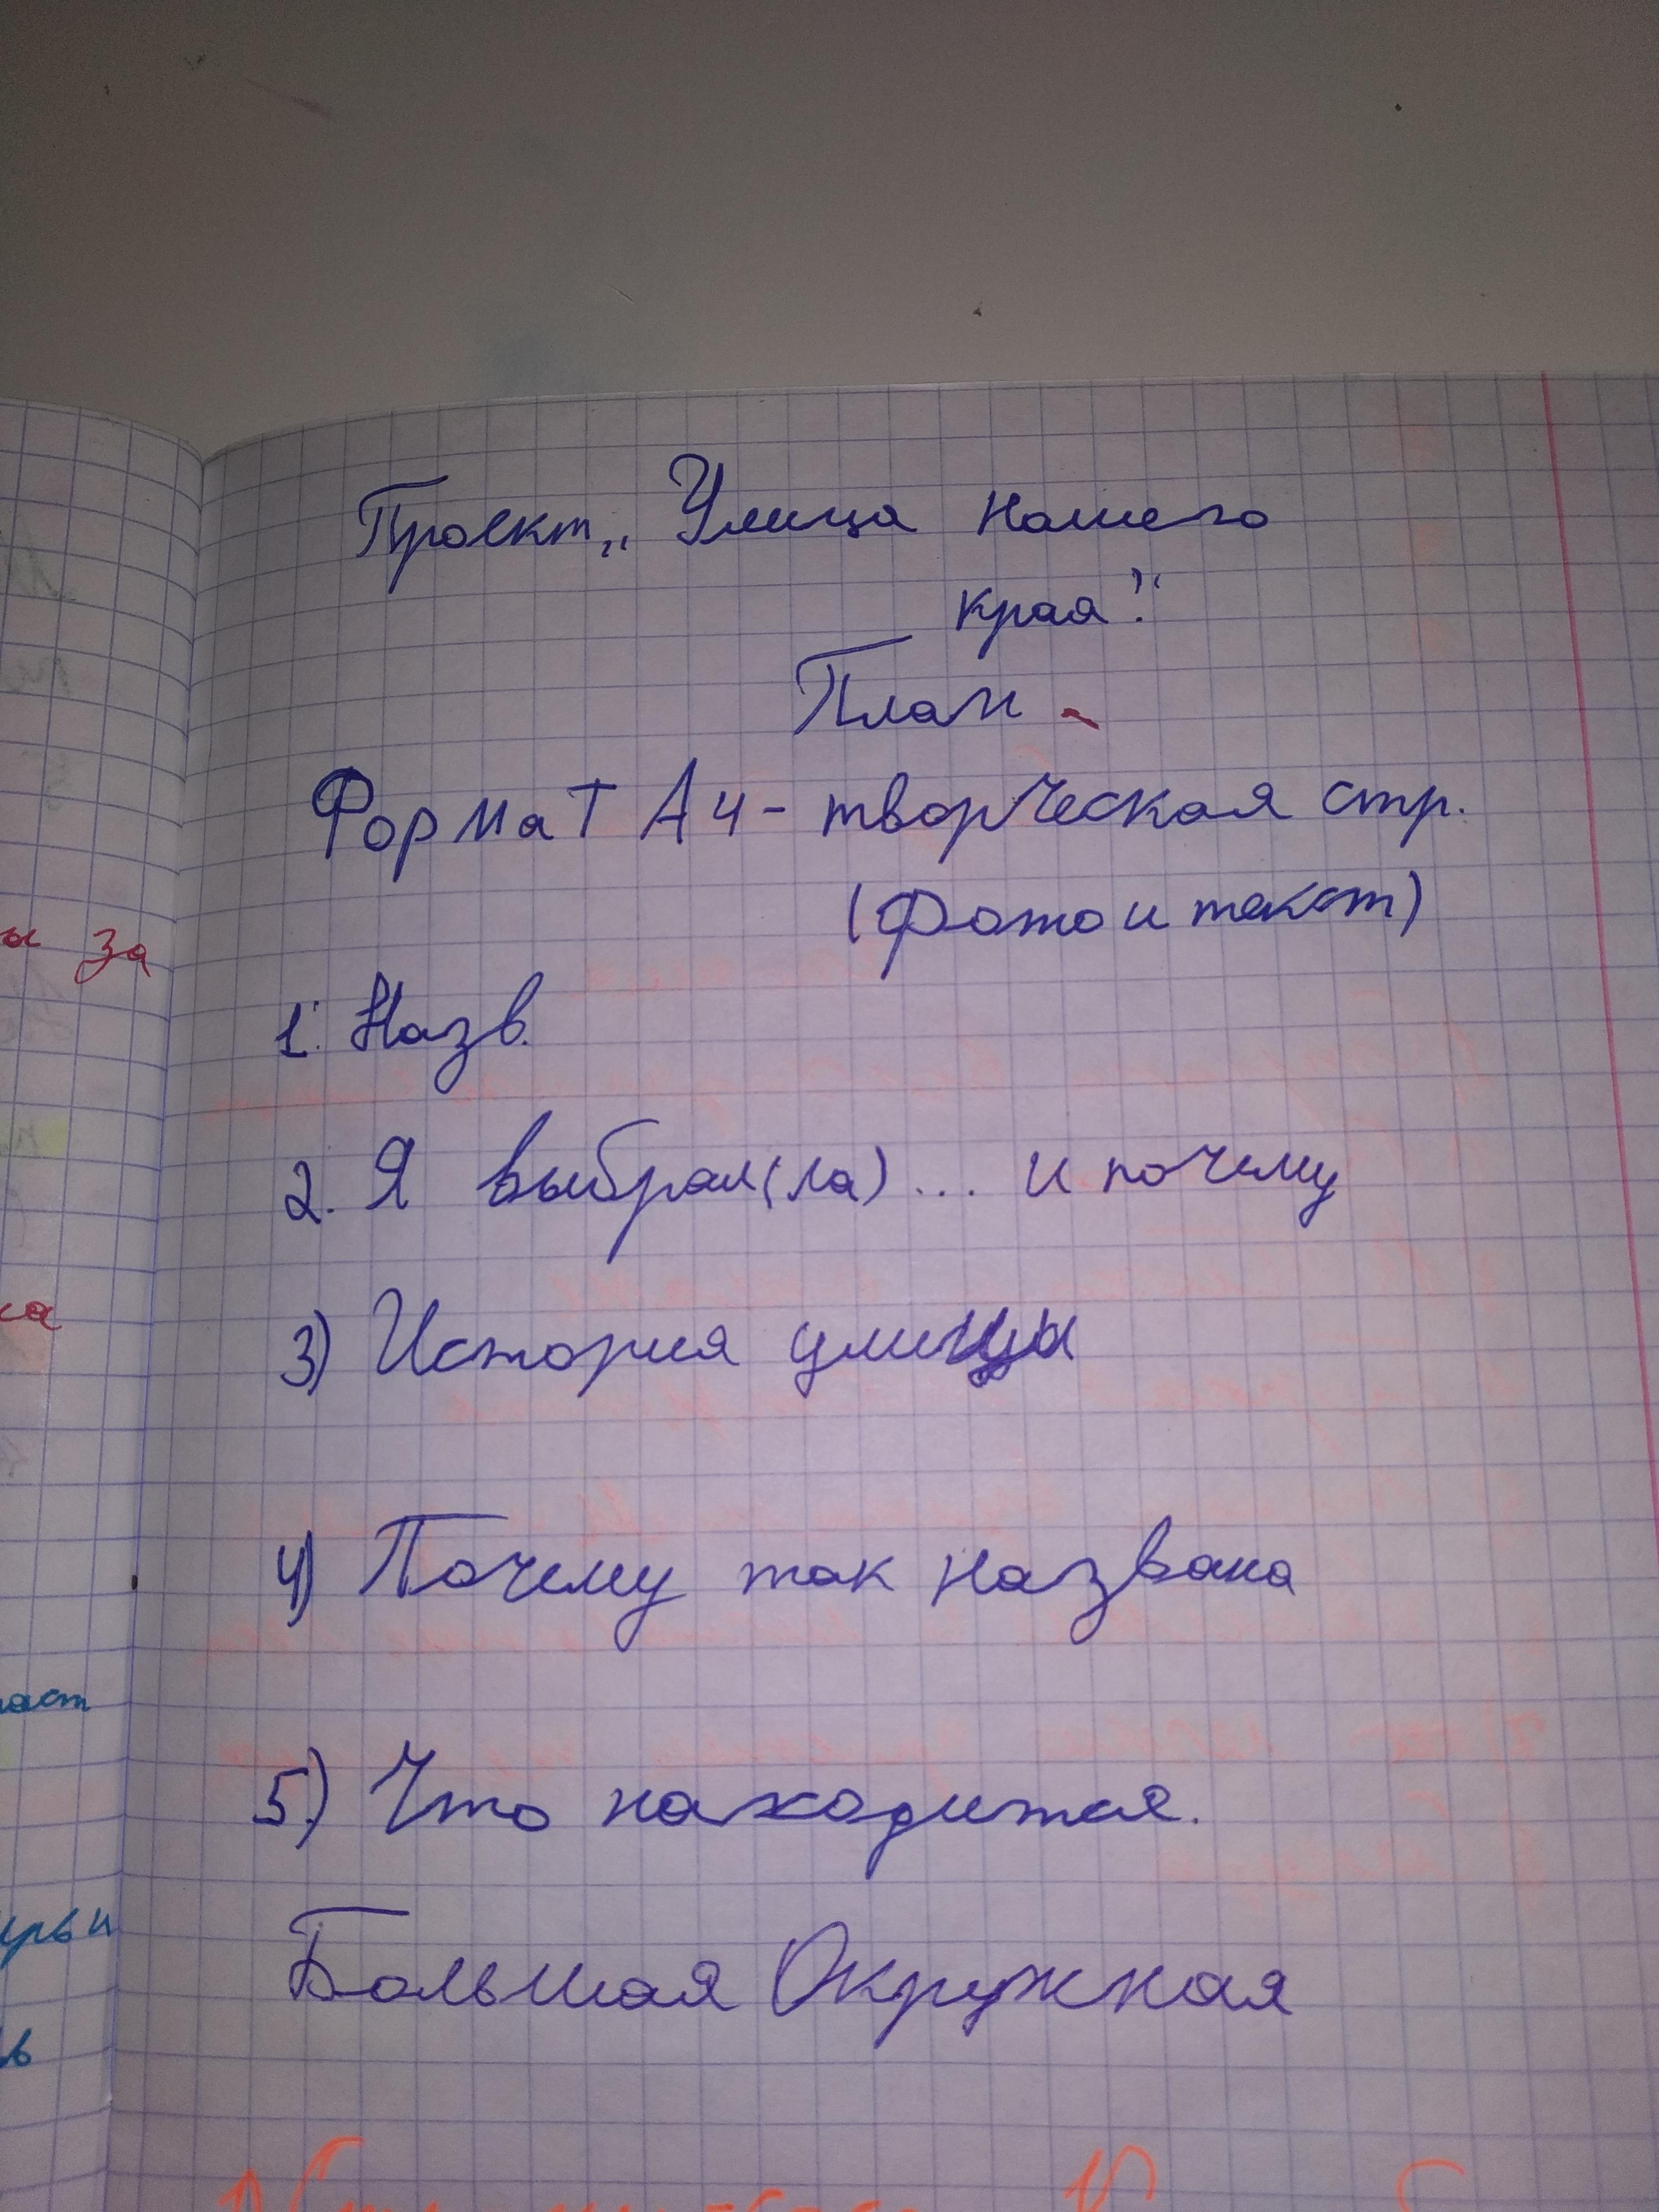 Проект „Улица нашего
края".
План
Формат А4 - творческая стр.
(Фото и текст)
1. Назв.
2. Я выбрал(ла)... и почему
3) История улицы
4) Почему так названа
5.) Что находится.
Большая Окружная
за